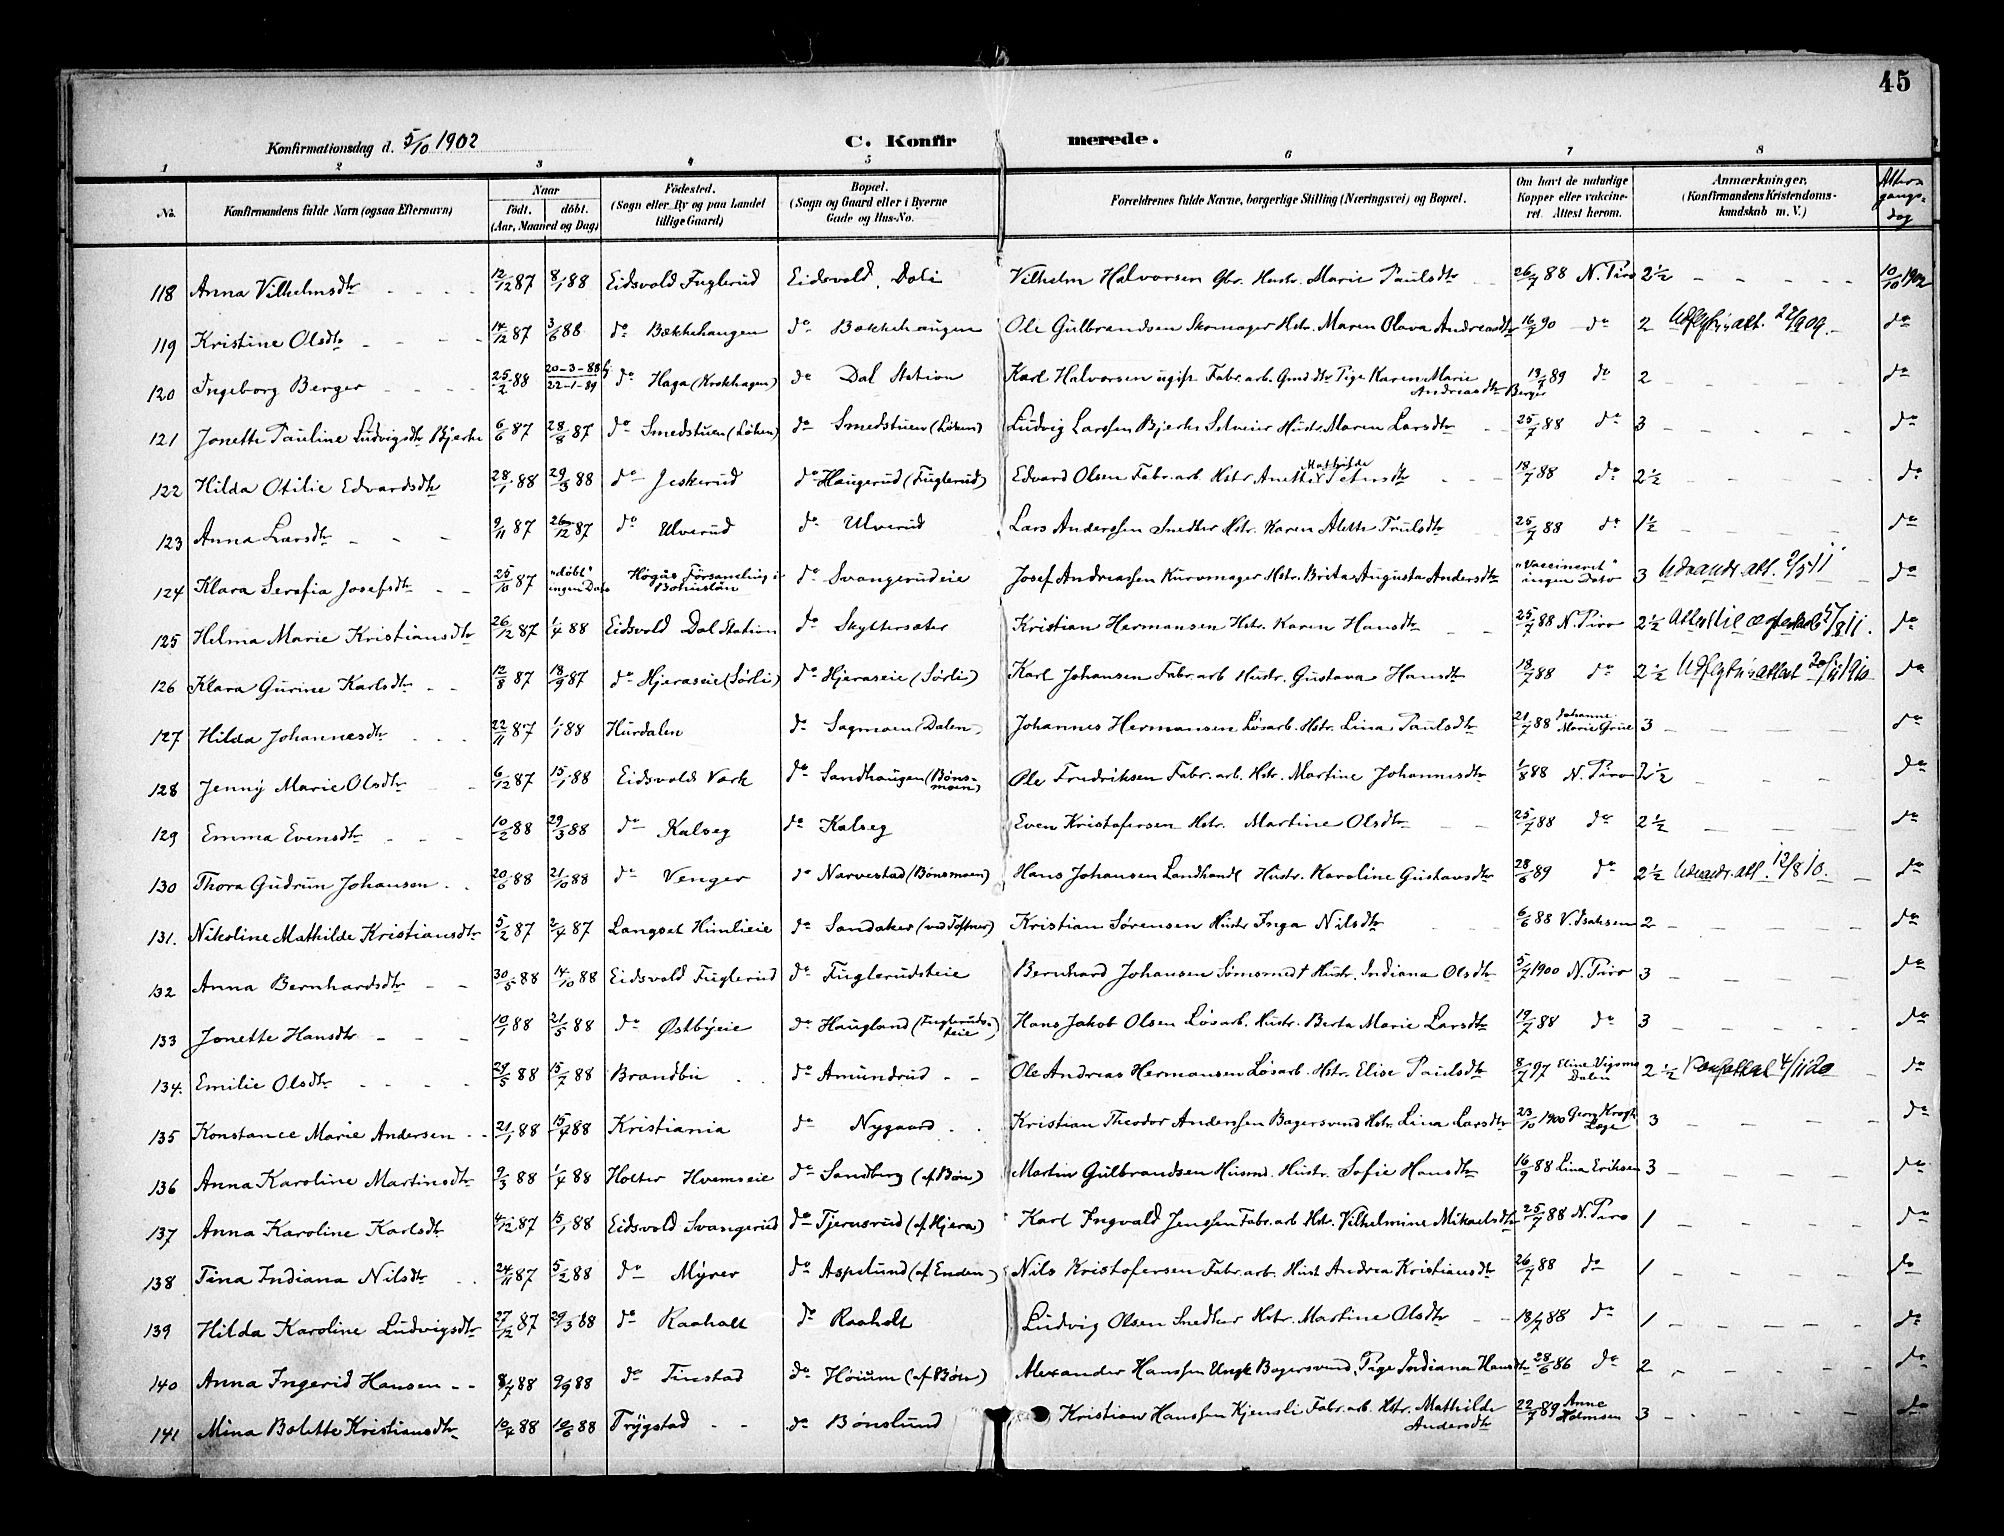 45
Konfirmationsdag d. 5/10 1902 C. Konfirmerede.
1 2 3 4 5 6 7 8
No. Konfirmandens fulde Navn (ogsaa Efternavn) Naar født. døbt. (Aar, Maaned og Dag) Fødested. (Sogn eller By og paa Landet tillige Gaard) Bopæl. (Sogn og Gaard eller i Byerne Gade og Hus-No. Forældrenes fulde Navne, borgerlige Stilling (Næringsvei) og Bopæl. Om havt de naturlige Kopper eller vaccineret. Attest herom. Anmærkninger. (Konfirmandens Kristendomskundskab m. V.) Altergangsdag
118 Anna Vilhelmsdtr 12/12 87 8/1 88 Eidsvold Fuglerud Eidsvold, Dali Vilhelm Halvorsen Gbr. Hustr. Marie Paulsdtr 26/7 88 N. Piro 2½ 10/10 1902
119 Kristine Olsdtr 14/12 87 3/6 88 do Bækkehaugen do Bækkehaugen Ole Gulbrandsen Skomager Hstr. Maren Olava Andreasdtr 16/9 90 do 2 Udflytn.att. 22/ 909. do
120 Ingeborg Berger 25/2 88 20-3-88 22-1-89 do Haga (Krokhagen) do Dal Station Karl Halvorsen ugift Fabr. arb. Gmd dtr Pige Karen Marie Andreasdtr Berger 19/7 89 do 2 do
121 Jonette Pauline Ludvigsdtr Bjerke 6/6 87 28/8 87 do Smedstuen (Løken) do Smedstuen (Løken) Ludvig Larssen Bjerke Selveier Hustr. Maren Larsdtr 25/7 88 do 3 do
122 Hilda Otilie Edvardsdtr 28/1 88 29/3 88 do Jeskerud do Haugerud (Fuglerud) Edvard Olsen Fabr. arb. Hstr. Anette Mathilde Petersdtr 18/7 88 do 2½ do
123 Anna Larsdtr 9/11 87 26/12 87 do Ulverud do Ulverud Lars Anderssen Snedker Hstr. Karen Alette Trulsdtr 25/7 88 do 1½ do
124 Klara Serafia Josefsdtr 25/10 87 "døbt" ingen Dato Høgus Församling i Bohuslän do Svangerudeie Josef Andreassen Kurvmager Hstr. Brita Augusta Andersdtr "Vaccineret" ingen Dato 3 Udvandr. att. 9/5 11 do
125 Helma Marie Kristiansdtr 26/12 87 1/4 88 Eidsvold Dal Station do Skyttersæter Kristian Hermansen Hstr. Karen Hansdtr 25/7 88 N. Piro 2½ Att. til ægteskab 5/8 11. do
126 Klara Gurine Karlsdtr 12/8 87 18/9 87 do Hjeraseie (Sørli) do Hjeraseie (Sørli) Karl Johansen Fabr. arb Hustr. Gustava Hansdtr 18/7 88 do 2½ Udflytn.attest 20/11 1910 do
127 Hilda Johannesdtr 22/11 87 1/1 88 Hurdalen do Sagmoen (Dalen) Johannes Hermansen Løsarb. Hstr. Lina Paulsdtr 21/7 88 Johanne Marie Grue 3 do
128 Jenny Marie Olsdtr 6/12 87 15/1 88 Eidsvolds Værk do Sandhaugen (Bønsmoen) Ole Fredriksen Fabr. arb. Hstr. Martine Johannesdtr 1/8 88 N. Piro 2½ do
129 Emma Evensdtr 10/2 88 29/3 88 do Kalseg do Kalseg Even Kristofersen Hstr. Martine Olsdtr 25/7 88 do 2½ do
130 Thora Gudrun Johansen 20/6 88 21/10 88 do Venger do Narvestad (Bønsmoen) Hans Johansen Landhandl Hustr. Karoline Gustavsdtr 28/6 89 do 2½ Udvandr. att. 12/8 10. do
131. Nikoline Mathilde Kristiansdtr 5/2 87 2/4 87 Langset Himlieie do Sandaker (ved Toftner) Kristian Sørensen Hustr Inga Nilsdtr 6/6 88 V. Isaksen 2 do
132 Anna Bernhardsdtr 30/5 88 14/10 88 Eidsvold Fuglerud do Fuglerudseie Bernhard Johansen Husmd Hustr. Indiana Olsdtr 5/7 1900 N. Piro 3 do
133 Jonette Hansdtr 10/1 88 21/5 88 do Østbyeie do Haugland (Fuglerudseie) Hans Jakob Olsen Løsarb. Hustr. Berta Marie Larsdtr 19/7 88 do 3 do
134. Emilie Olsdtr 24/5 88 15/7 88 Brandbu do Amundrud Ole Andreas Hermansen Løsarb. Hstr. Elise Paulsdtr 8/7 97 Elina Vigsmo Dalen 2½ Konf.attest 4/11 20 do
135 Konstance Marie Andersen 21/1 88 15/4 88 Kristiania do Nygaard Kristian Theodor Anderssen Bagersvend Hstr. Lina Larsdtr 23/10 1900 Georg Krogh Læge 3 do
136 Anna Karoline Martinsdtr 9/3 88 1/4 88 Holter Hvemseie do Sandberg (af Bøn) Martin Gulbrandsen Husmd. Hustr. Sofie Hansdtr 16/9 88 Lina Eriksen 3 do
137 Anna Karoline Karlsdtr 4/12 87 15/1 88 Eidsvold Svangerud do Tjernsrud (af Hjera) Karl Ingvald Jenssen Fabr. arb Hstr. Vilhelmine Mikaelsdtr 25/7 88 N. Piro 1 do
138 Tina Indiana Nilsdtr 24/11 87 5/2 88 do Myrer do Aspelund (af Enden) Nils Kristofersen Fabr. arb. Hust Andrea Kristiansdtr 26/7 88 do 1 do
139 Hilda Karoline Ludvigsdtr 27/12 87 29/3 88 do Raaholt do Raaholt Ludvig Olsen Snedker Hstr. Martine Olsdtr 18/7 88 do 1 do
140 Anna Ingerid Hansen 8/7 88 9/9 88 do Finstad do Høium (af Bøn) Alexander Hanssen Ungk Bagersvend, Pige Indiana Hansdtr 28/6 86 do 2 do
141 Mina Bolette Kristiansdtr 10/4 88 10/6 88 Trygstad do Bønslund Kristian Hanssen Kjensli Fabr. arb. Hstr. Mathilde Andersdtr 22/7 89 Anne Holmsen 3 do